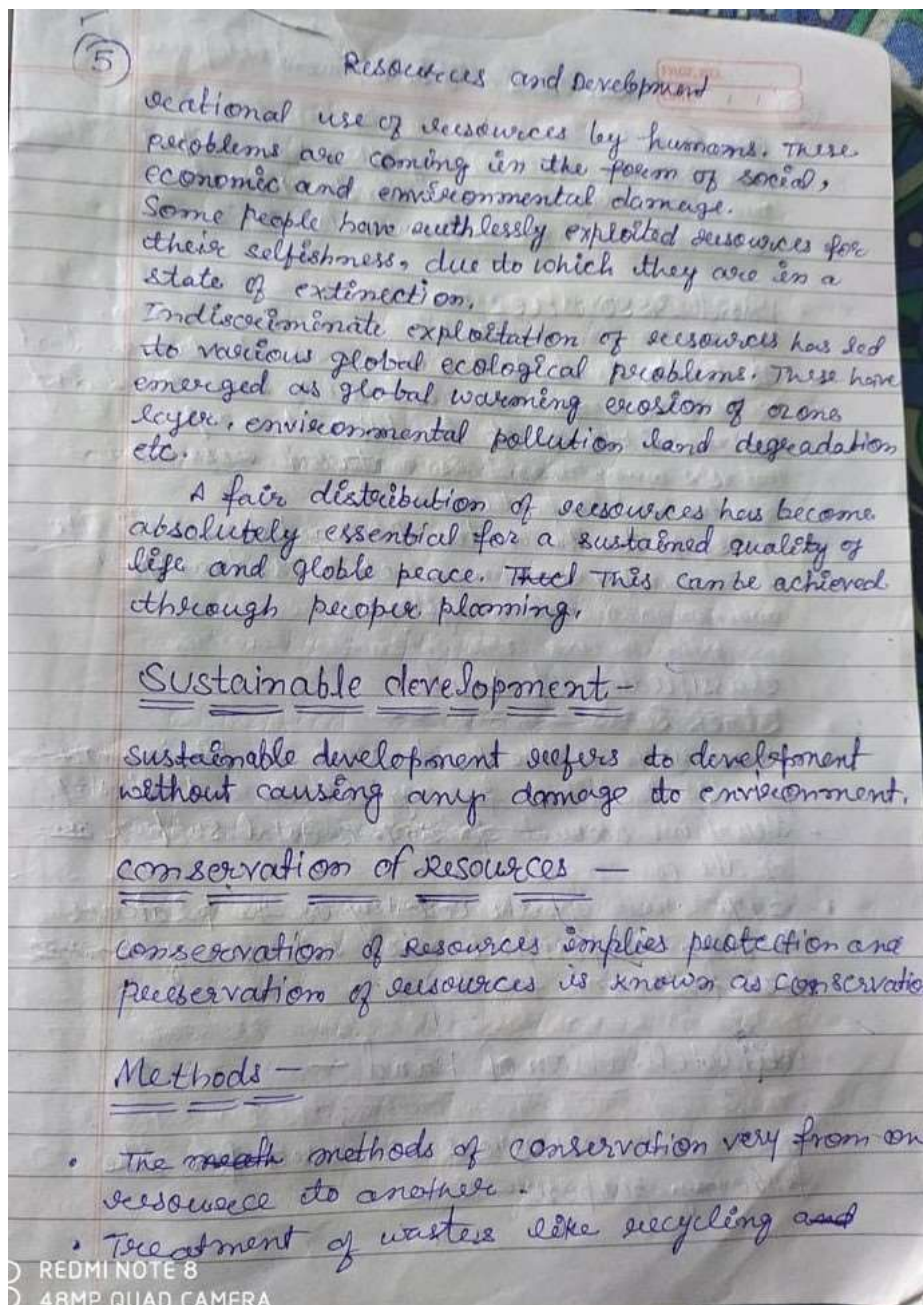 5
Resources and Development
PAGE NO.
rational use of resources by humans. These
problems are coming in the form of social,
economic and environmental damage.
Some people have ruthlessly exploited resources for
their selfishness, due to which they are in a
state of extinection.
Indiscriminate exploitation of resources has led
to various global ecological problems. These have
emerged as global warming erosion of ozone
layer, environmental pollution land degradation
etc.
A fair distribution of resources has become
absolutely essential for a sustained quality of
life and globle peace. This can be achieved
through proper planning.
Sustainable development-
sustainable development refers to development
without causing any damage to environment.
conservation of resources —
conservation of resources implies protection and
preservation of resources is known as conservatio
Methods —
• The methods of conservation very from on
resource to another.
• Treatment of wastes like recycling and
REDMI NOTE 8
48MP QUAD CAMERA